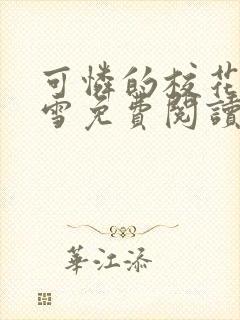 可憐的校花
雪免費閱讀
華江添